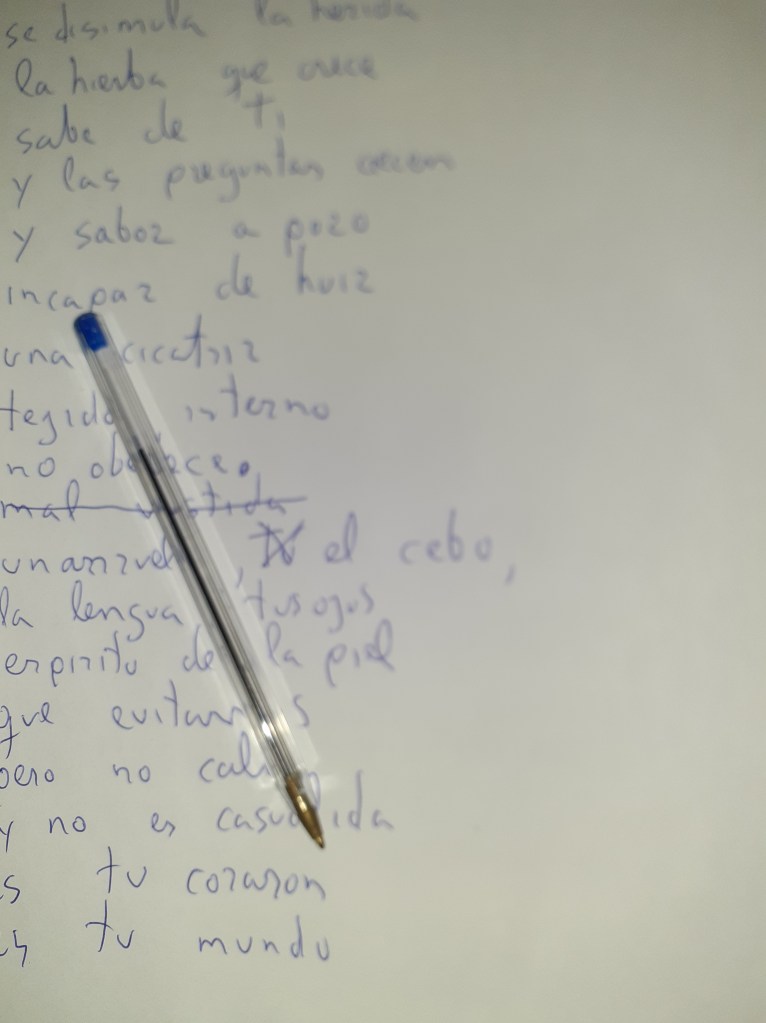 se disimula la herida
la hierba que crece
sabe de ti
y las preguntas crecen
y saboz a pozo
incapaz de huiz
una cicatriz
tegido interno
no obedece.
mal vestida
un anzuelo, el cebo,
la lengua, tus ojos
espiritu de la piel
que evitamos
pero no
y no es casualida
es tu corazon
es tu mundo